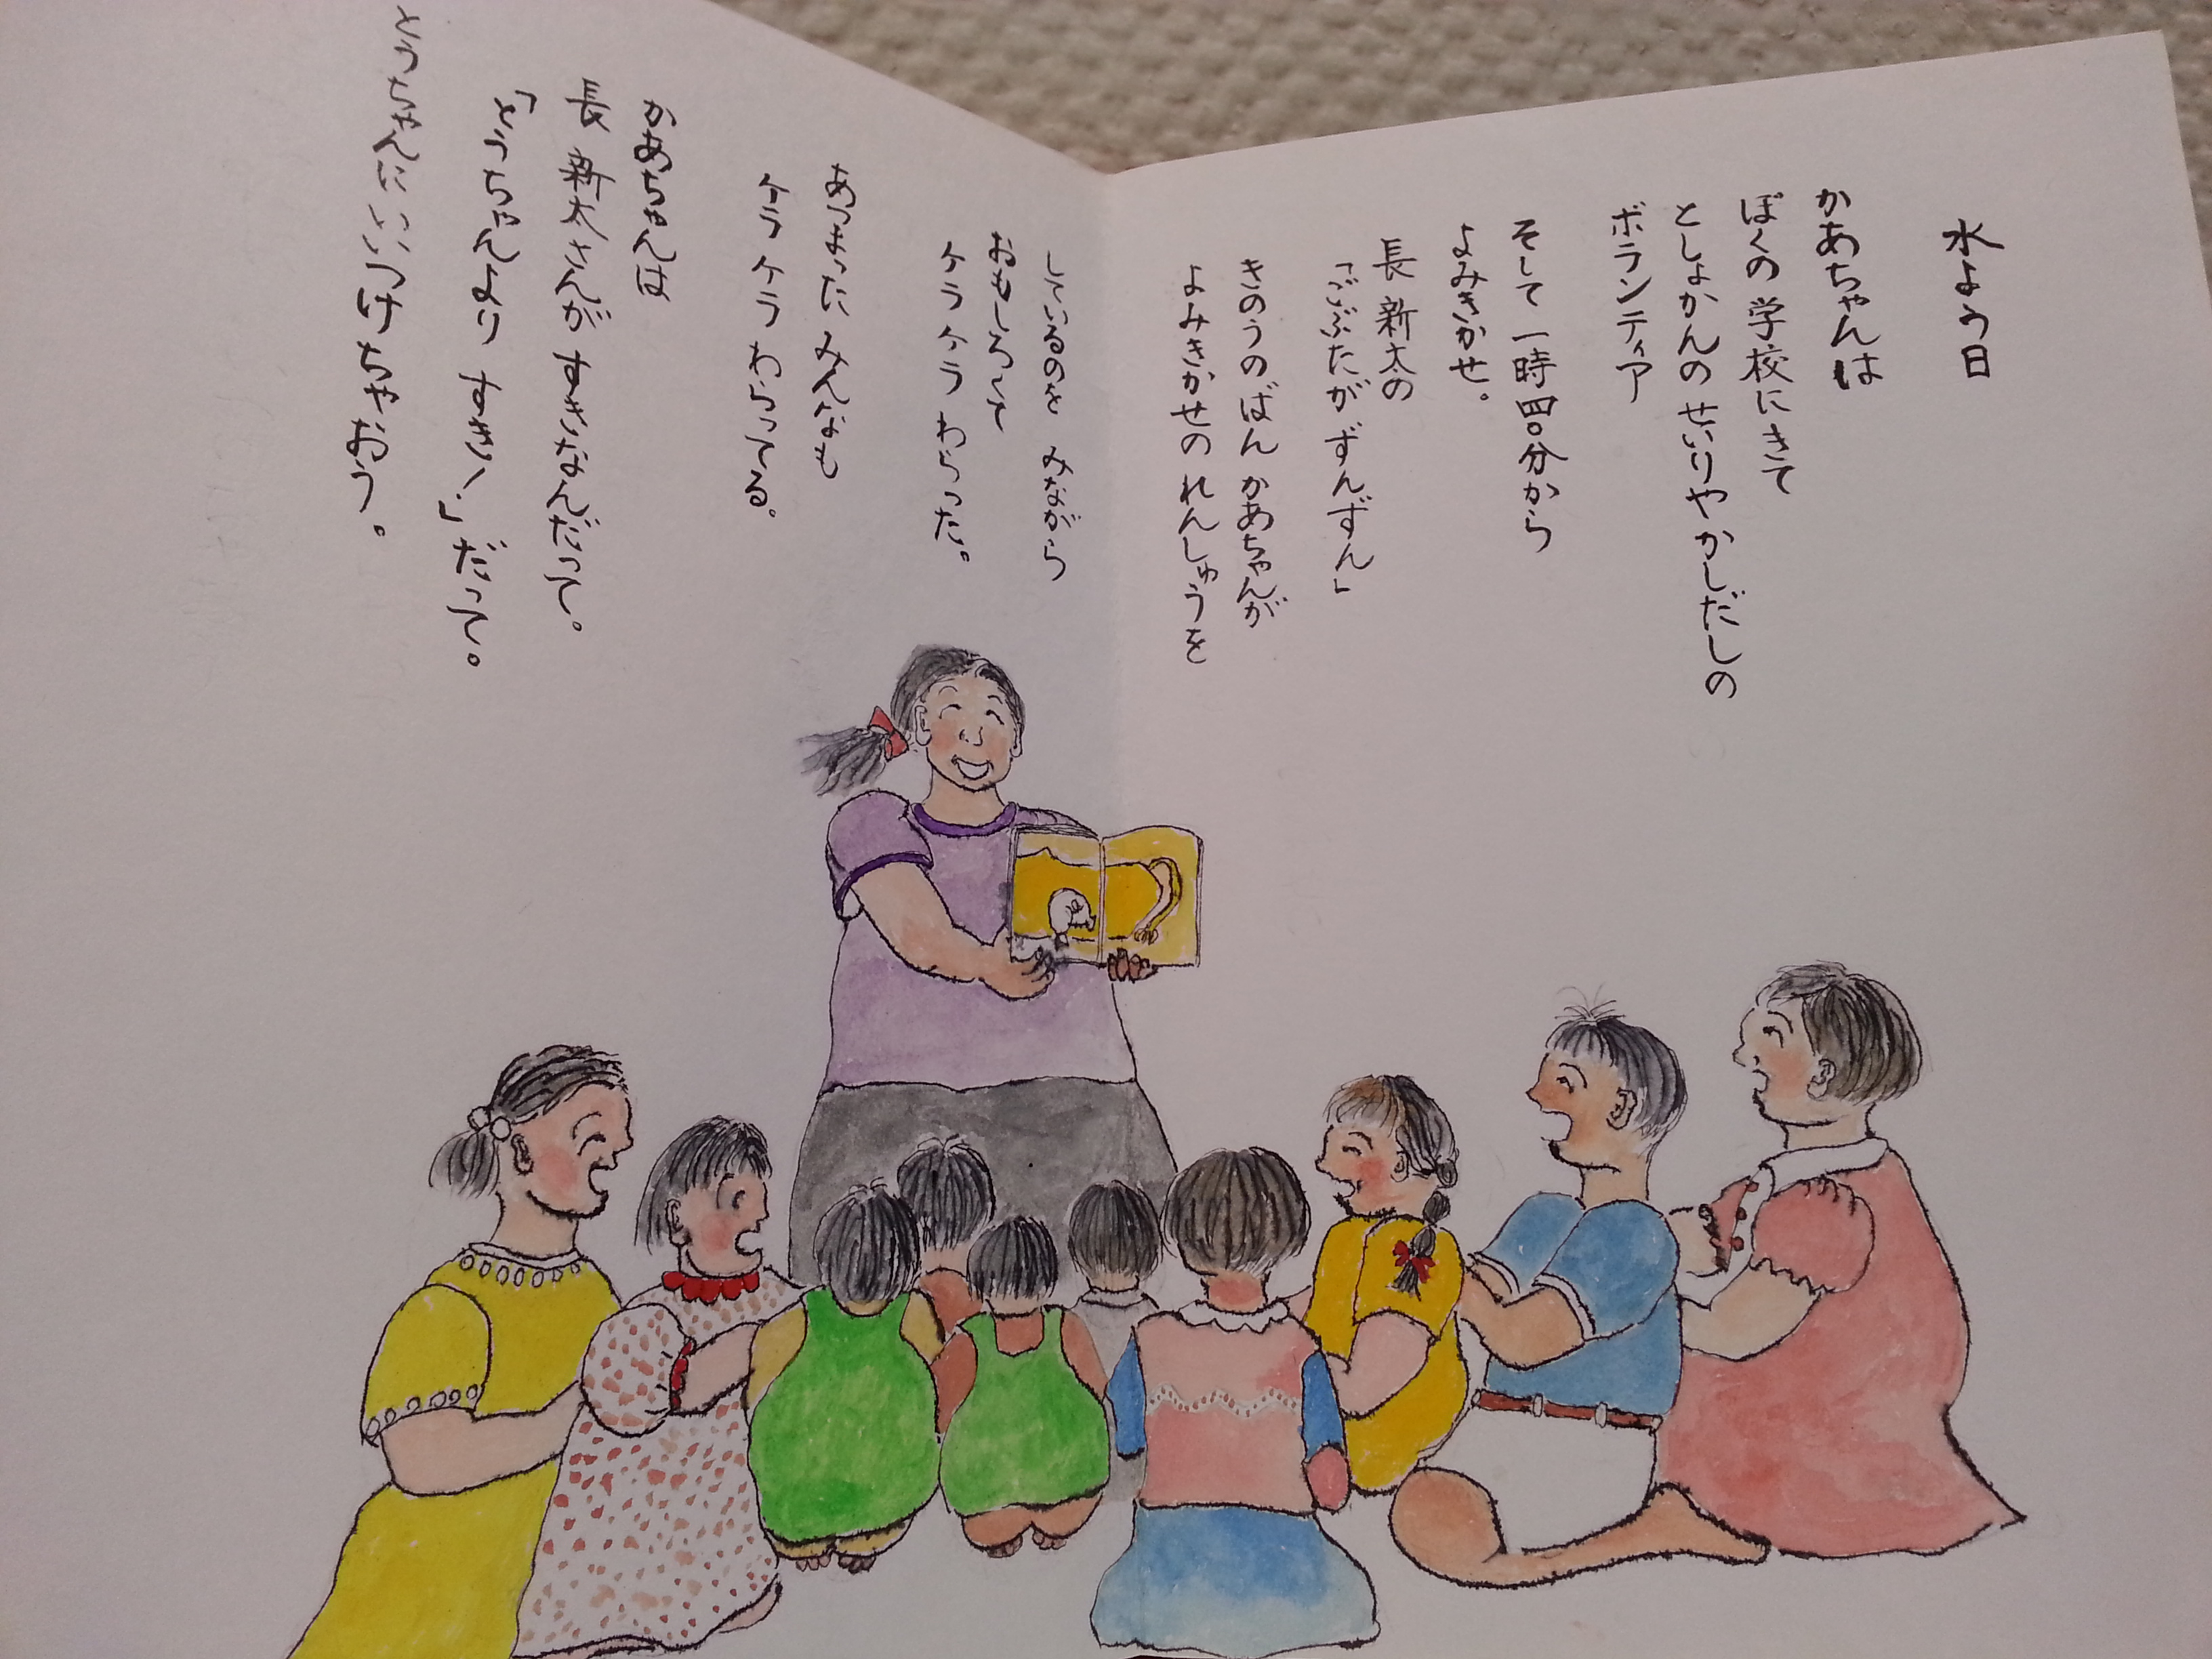 水よう日
かあちゃんは
ぼくの学校にきて
としょかんのせいりやかしだしの
ボランティア
そして一時四〇分から
よみきかせ。
長新太の
「ごぶたがずんずん」
きのうのばん かあちゃんが
よみきかせの れんしゅうを
しているのを みながら
おもしろくて
ケラケラ わらった。
あつまった みんなも
ケラケラ わらってる。
かあちゃんは
長新太さんが すきなんだって。
「とうちゃんより すき！」だって。
とうちゃんに いいつけちゃおう。